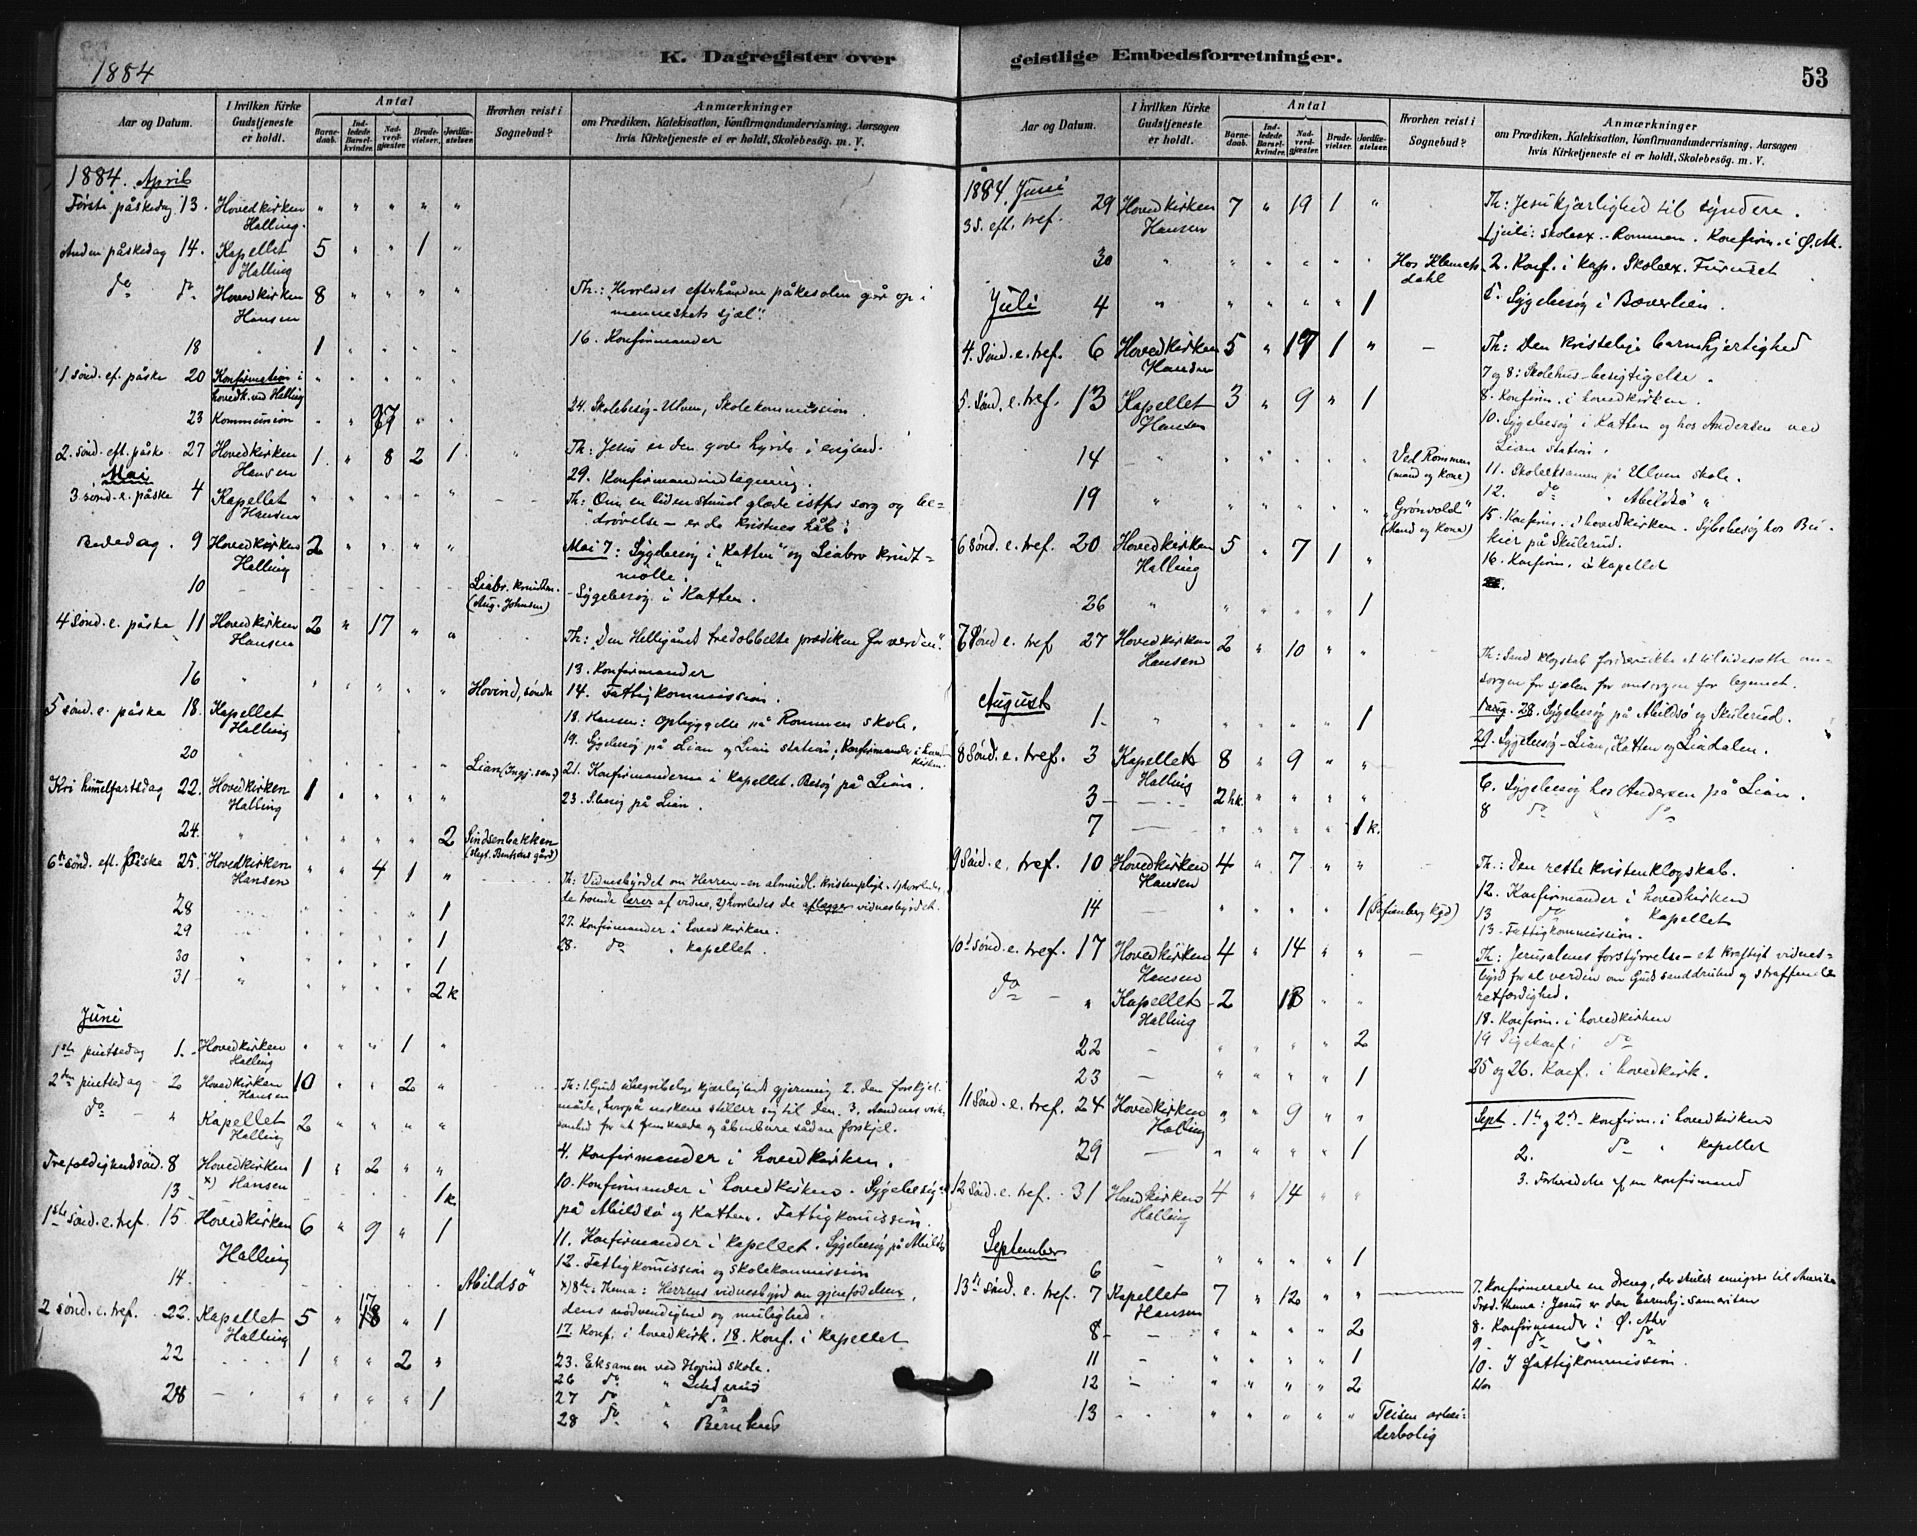 1884
K. Dagregister over
Aar og Datum.
I hvilken Kirke Gudstjeneste er holdt.
Antal
Barnedaab.
Indledede Barselkvinder.
Nadverdgjæster.
Brudevielser.
Jordfæstelser.
Hvorhen reist i Sognebud?
Anmærkninger
om Prædiken, Katekisation, Konfirmandundervisning, Aarsagen
hvis Kirketjeneste ei er holdt, Skolebesøg. m. V.
1884. April
Første påskedag 13. Hovedkirken " " " " "
Halling.
Anden påskedag 14. Kapellet 5 " " 1 "
Halling
do do Hovedkirken 8 " " " " Th: "Hvorledes efterhånden påskesolen går op i
Hansen menneskets sjæl".
18 " 1 " " " " 16. Konfirmander
1 sønd. ef. påske 20 Konfirmation i " " " " "
hovedk. ved Halling
23 Kommunion " " " " 24. Skolebesøg - Ulven, Skolekommission.
2. sønd. eft. påske 27 Hovedkirken 1 " 8 2 1 " Th: Jesus er den gode hyrde i evighed.
Hansen 29. Konfirmandindtegning.
Mai
3 sønd. e. påske 4 Kapellet " " " " " Th: Om en liden stund glæde istfr sorg og be-
Hansen drøvelse - er de kristnes håb.
Bededag. 9 Hovedkirken 2 " " " " Mai 7: Sygebesøg i "Katten" og Liabro krudt-
Halling mølle.
10 Liabr. krudtm. Sygebesøg i Katten.
(Aug. Johnsen)
4 Sønd. e. påske 11 Hovedkirken 2 " 17 " "
Hansen Th: "Den Helligånds tredobbelte prædiken for verden".
13. Konfirmander
16 " " " " " " Hovind, søndre 14. Fattigkommission.
5 sønd. e. påske 18. Kapellet 18. Hansen: Opbyggelse på Rommen skole.
Halling 19. Sygebesøg på Lian og Lian station; Konfirmander i hovedkirken
20 " " " " " " 21. Konfirmanderne i kapellet. Besøg på Lian.
Kri himmelfartsdag 22. Hovedkirken 1 " " " " 23. S.besøg på Lian.
Halling
24. " " " " " 2 Sindsenbakken
6te sønd. eft. påske 25. Hovedkirken " " 4 1 "
Hansen Th: Vidnesbyrdet om Herren - en almindl. kristenpligt. 1) hvorledes
28 " " " " 1 de troende lærer af vidne, 2) hvorledes de aflægger vidnesbyrdet.
29 " " " " 1 27. Konfirmander i hovedkirken.
30 " " " " " 1 28. do " kapellet.
31 " " " " " 2 k
Juni
1ste pintsedag 1. Hovedkirken " " " 1 "
Halling
2den pintsedag - 2 Hovedkirken 10 " " 2 "
Hansen
do - " Kapellet 2 " " " "
Halling
Trefoldighedssønd. 8 Hovedkirken 1 " 2 " " 4. Konfirmander i hovedkirken.
x) Hansen
13 - 1 k 10. Konfirmander i hovedkirken. Sygebesøg
på Abildsø og Katten. Fattigkommission.
1ste sønd. e. tref. 15. Hovedkirken 6 " 9 " 1
Halling 11. Konfirmander i kapellet. Sygebesøg på Abildsø
12. Fattigkomission og skolekommission
14. Abildsø x) 8de: Thema: Herrens vidnesbyrd om gjenfødelsen,
dens nødvendighed og mulighed.
2 sønd. e. tref. 22. Kapellet 5 " " 1 17. Konf. i hovedkirk. 18. Konf. i kapellet
Halling
22 1 " " 2 " 23. Eksamen ved Hovind skole.
26 do "
28 - " " " " 1 27 do " do
28 do "
geistlige Embedsforretninger.
53
Aar og Datum.
I hvilken Kirke Gudstjeneste er holdt.
Antal
Barnedaab.
Indledede Barselkvinder.
Nadverdgjæster.
Brudevielser.
Jordfæstelser.
Hvorhen reist i Sognebud?
Anmærkninger
om Prædiken, Katekisation, Konfirmandundervisning, Aarsagen
hvis Kirketjeneste ei er holdt, Skolebesøg. m. V.
1884. Juni
29 Hovedkirken 7 " 19 1 " Th: Jesu kjærlighed til syndere.
3 s. eft. tref. Hansen 1 juli: skoleex. - Rommen. Konfirm. i Ø. Ak.
30 " " " " " " Hos Klemetsdahl 2. Konf. i kap. Skoleex. Furuset
Juli 4 " " " " " 1 5. Sygebesøg i Bæverlien.
4. Sønd. e. tref. 6 Hovedkirken 5 " 1 " - Th: Den kristelige barmhjertighed
Hansen 7 og 8: Skolehus-besigtigelse.
5. Sønd. e. tref. 13 Kapellet 3 " 9 " 1 8. Konfirm. i hovedkirken.
Hansen 10. Sygebesøg i Katten og hos Andersen ved
Lian station.
14 - " " " " " Ved Rommen 11. Skoleeksamen på Ulven skole.
(mand og kone)
19 " " " " " " "Grønvold" 12. do " Abildsø "
(Mand og kone) 15. Konfirm. i hovedkirken. Sygebesøg hos
på Skulerud.
6 Sønd. e. tref. 20 Hovedkirken 5 " 7 1 "
Halling 16. Konfirm. i kapellet
26 " " " " " 1
7 Sønd e. tref 27 Hovedkirken 2 " 10 " "
Hansen Th: Sand klogskab fordrer ikke at tilsidesætte om-
sorgen for sjælen for omsorgen for legemet.
August
1 - " " " " " 1 28. Sygebesøg på Abildsø og Skulerud.
8 Sønd. e. tref. 3 Kapellet 8 " 9 " " 29. Sygebesøg - Lian, Katten og Liadalen.
Halling
3 - 2 hk. " " " " 6. Sygebesøg hos Andersen på Lian.
7 - " " " " 1 k. 8 do do
9 Sønd. e. tref. 10 Hovedkirken 4 " 7 " " - Th: Den rette kristenklogskab.
Hansen 12. Konfirmander i hovedkirken
14 - " " " " 1 13 do " kapellet
13. Fattigkommission.
10de sønd. e. tref. 17 Hovedkirken 4 " 14 " " - Th: Jerusalems forstyrrelse - et kraftigt vidnes-
Hansen byrd for al verden om Guds sanddruhed og straffende
retfærdighed.
do - " Kapellet - 2 " " "
Halling 18. Konfirm. i hovedkirken
22 - " " " " 2 19 do
23 - " " " " 1 25 og 26. Konf. i hovedkirk.
11 Sønd. e. tref. 24 Hovedkirken " " 9 " "
Halling Sept. 1ste og 2den - konfirm. i hovedkirken
29 - " " " " 1 2. do " kapellet
3. Forberedelse af en konfirmand
12 Sønd. e. tref. 31 Hovedkirken 4 " 14 " "
Halling
September
6 - " " " " 1
13de sønd. e. tref. 7 Kapellet 7 " 12 " " 7. Konfirmerede en Dreng, der skulde emigrere til Amerika
Hansen Præd. thema: Jesus er den barmhj. samaritan
8 - " " " " 2 8. Konfirmander i Ø. Aker
9. do " do
11 - " " " " 1 10. I Fattigkommission.
12 - " " " " 2
13 - " " " " " Teisen arbei-
derbolig